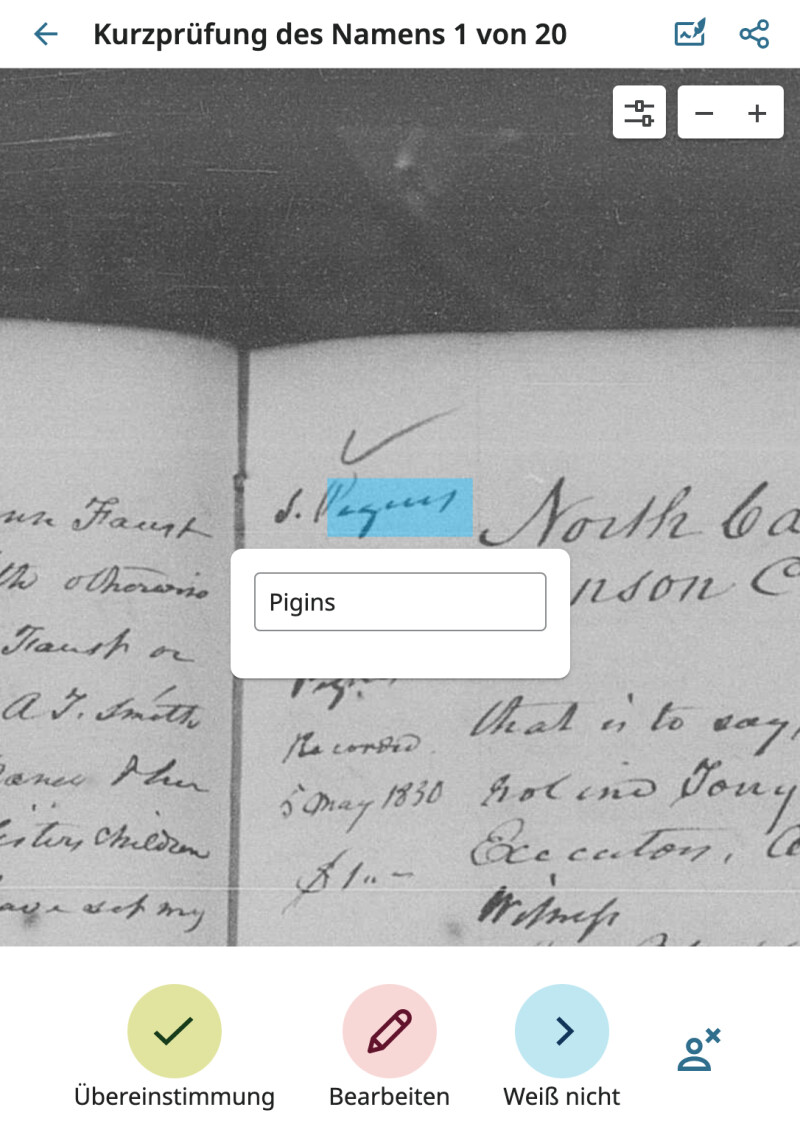 Kurzprüfung des Namens 1 von 20
Faust
th otherwise
Faust or
A T. Smith
children
have set my
J. Pigins
Pigins
Recorded
5 May 1830
$1..-
North Ca
nson C
that is to say,
Executors,
Witness
Übereinstimmung
Bearbeiten
Weiß nicht